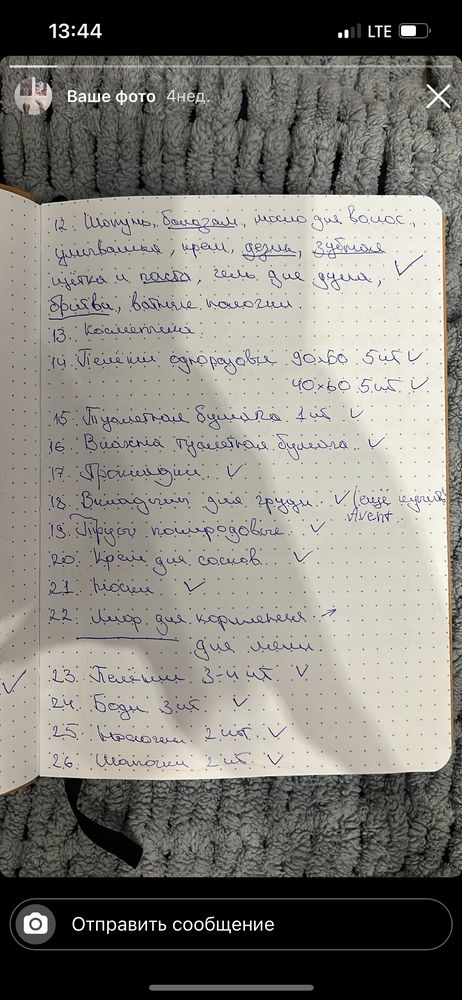 13:44
LTE
Ваше фото 4нед.
12. Шампунь, бальзам, масло для волос,
умывашка, крем, дезик, зубная
щётка и паста, гель для душа, ✓
бритва, ватные палочки
13. Косметика.
14. Пелёнки одноразовые 90×60 5шт ✓
40×60 5шт. ✓
15. Туалетная бумага 1шт ✓
16. Влажна туалетная бумага. ✓
17. Прокладки. ✓
18. Вкладыши для груди. ✓ (ещё купить
Avent.
19. Трусы послеродовые. ✓
20. Крем для сосков. ✓
21. Носки ✓
22. Лиф для кормления. →
для меня
✓ 23. Пелёнки 3-4 шт. ✓
24. Боди 3шт. ✓
25. Носочки 2шт. ✓
26. Шапочки 2шт. ✓
Отправить сообщение